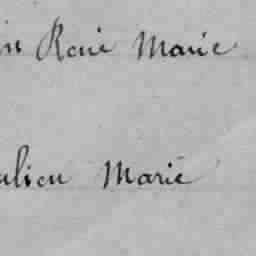 in René Marie
ulien Marie